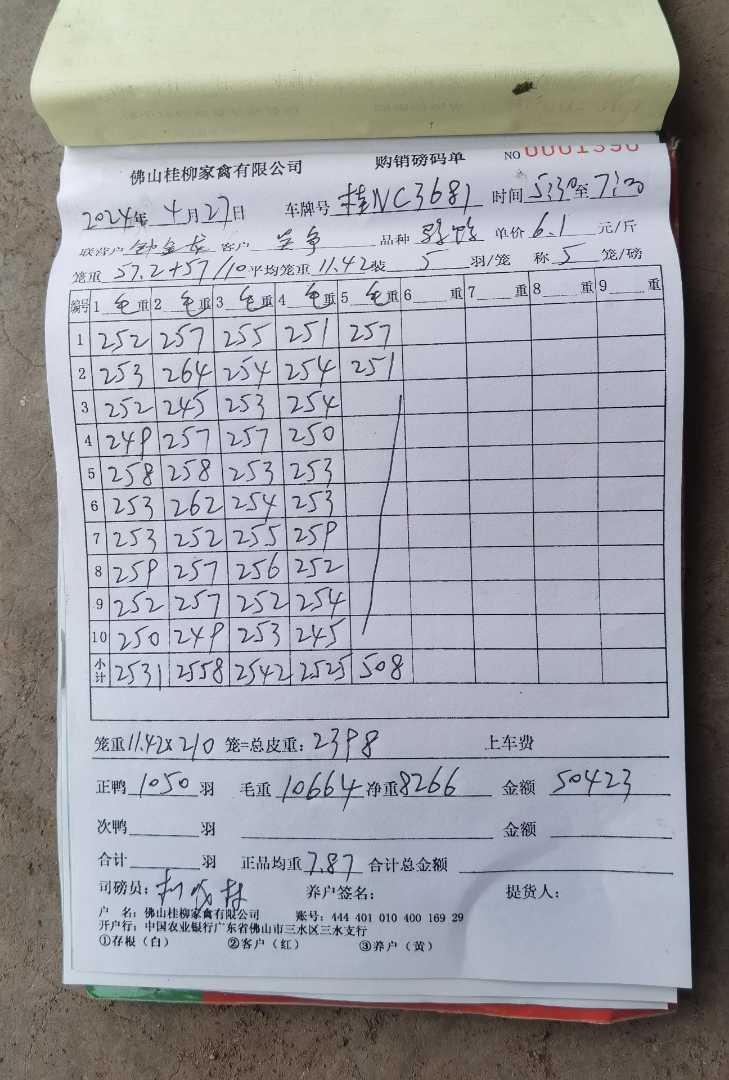 佛山桂柳家禽有限公司 购销磅码单 NO 0001390
2024年 4月27日 车牌号 桂NC3681 时间 5:30至7:30
联营户 客户 兰争 品种 单价 6.1 元/斤
笼重 57.2+57/10平均笼重 11.42装 5 羽/笼 称 5 笼/磅
编号 1 毛重 2 毛重 3 毛重 4 毛重 5 毛重 6 重 7 重 8 重 9 重
1 252 257 255 251 257
2 253 264 254 254 251
3 252 245 253 254
4 249 257 257 250
5 258 258 253 253
6 253 262 254 253
7 253 252 255 259
8 259 257 256 252
9 252 257 252 254
10 250 249 253 245
小计 2531 2558 2542 2525 508
笼重11.42×210 笼=总皮重:2398 上车费
正鸭 1050 羽 毛重 10664 净重8266 金额 50423
次鸭 羽 金额
合计 羽 正品均重 7.87 合计总金额
司磅员: 养户签名: 提货人:
户 名:佛山桂柳家禽有限公司 账号:444 401 010 400 169 29
开户行:中国农业银行广东省佛山市三水区三水支行
①存根(白) ②客户(红) ③养户(黄)